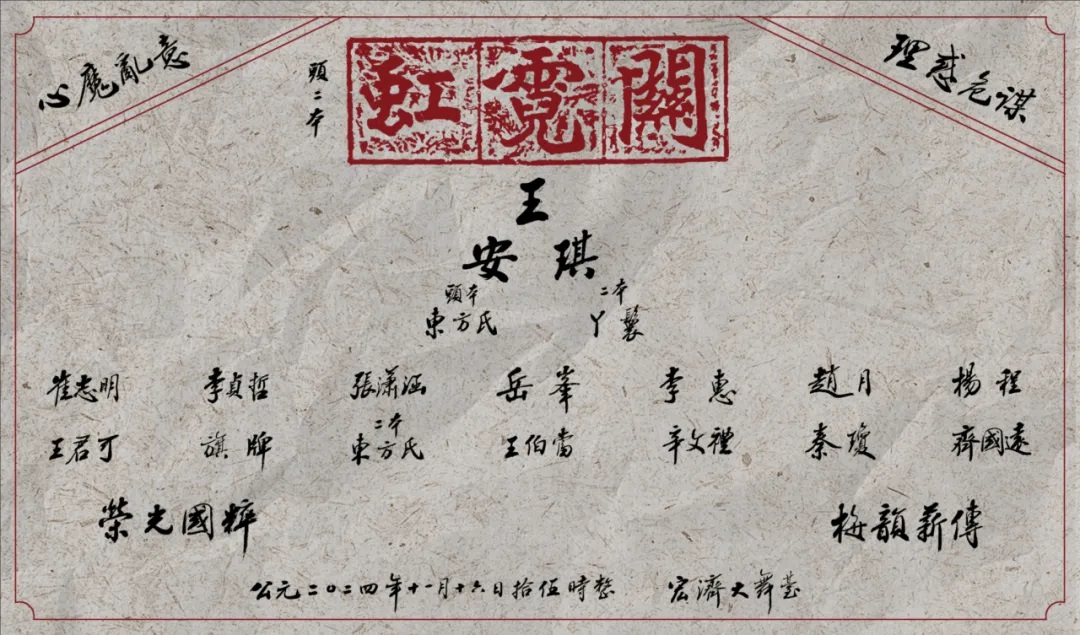 心魔亂意
頭二本
虹霓關
理惑危謀
王
安琪
頭本 二本
東方氏 丫鬟
崔志明 李貞哲 張瀟涵 岳峯 李惠 趙月 楊程
二本
王君可 旗牌 東方氏 王伯當 辛文禮 秦瓊 齊國遠
榮光國粹 梅韻薪傳
公元二〇二四年十一月十六日拾伍時整 宏濟大舞臺